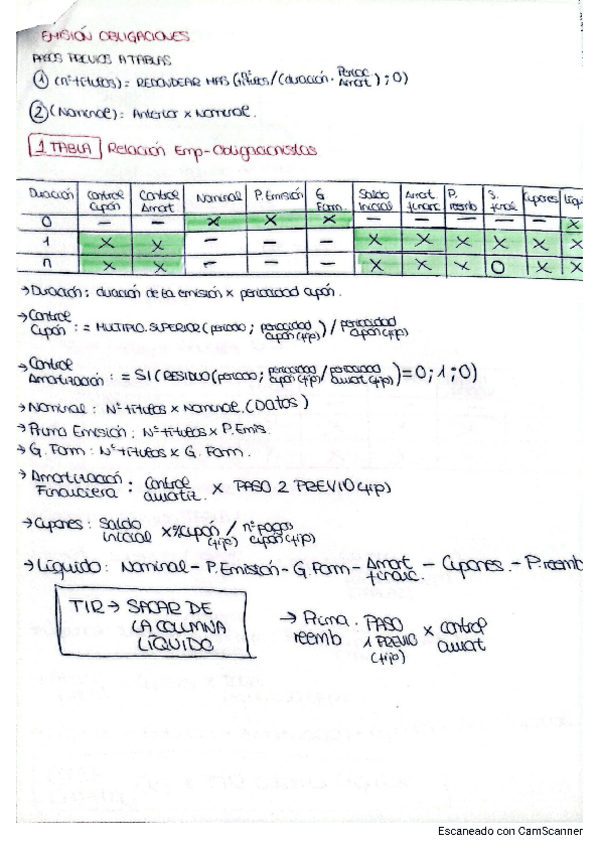 EMISIÓN OBLIGACIONES
PASOS PREVIOS A TABLAS
① (nº títulos) = REDONDEAR MAS (títulos/(duración · Period Amort) ; 0)
② (Nominal) = Anterior x Nominal.
1 TABLA Relación Emp-Obligacionistas
Duración Control Cupón Control Amort Nominal P. Emisión G Form. Saldo inicial Amort financ P. reemb S. final Cupones Líqu
0 — — X X X — — — — — X
1 X X — — — X X X X X X
n X X — — — X X X O X X
→ Duración: duración de la emisión x periodicidad cupón.
→ Control Cupón : = MULTIPLO.SUPERIOR(periodo ; periodicidad cupón (fijo)) / periodicidad cupón (fijo)
→ Control Amortización : = SI(RESIDUO(periodo; periodicidad cupón (fijo) / periodicidad amort (fijo)) = 0 ; 1 ; 0)
→ Nominal : Nº títulos x Nominal. (Datos)
→ Prima Emisión : Nº títulos x P. Emis.
→ G. Form : Nº títulos x G. Form.
→ Amortización Financiera : Control amortiz. x PASO 2 PREVIO (fijo)
→ Cupones : Saldo inicial x % cupón (fijo) / nº pagos cupón (fijo)
→ Líquido : Nominal - P. Emisión - G. Form - Amort financ. - Cupones. - P. reemb
TIR → SACAR DE
LA COLUMNA
LÍQUIDO
→ Prima reemb . PASO 1 PREVIO (fijo) x control amort
Escaneado con CamScanner